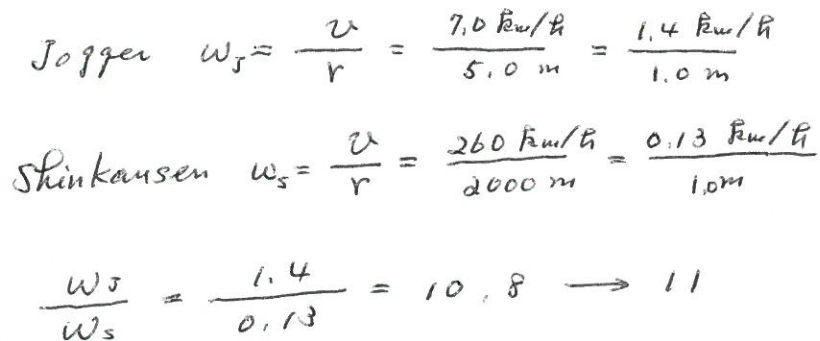 Jogger ω_J = v/r = 7.0 km/h / 5.0 m = 1.4 km/h / 1.0 m
Shinkansen ω_s = v/r = 260 km/h / 2000 m = 0.13 km/h / 1.0m
ω_J/ω_s = 1.4/0.13 = 10.8 → 11